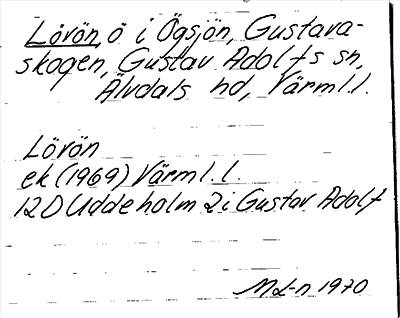 Lövön, ö i Ögsjön, Gustava-
skogen, Gustav Adolfs sn,
Älvdals hd, Värml.l.
Lövön
ek (1969) Värml.l.
12D Uddeholm 2i Gustav Adolf
1970